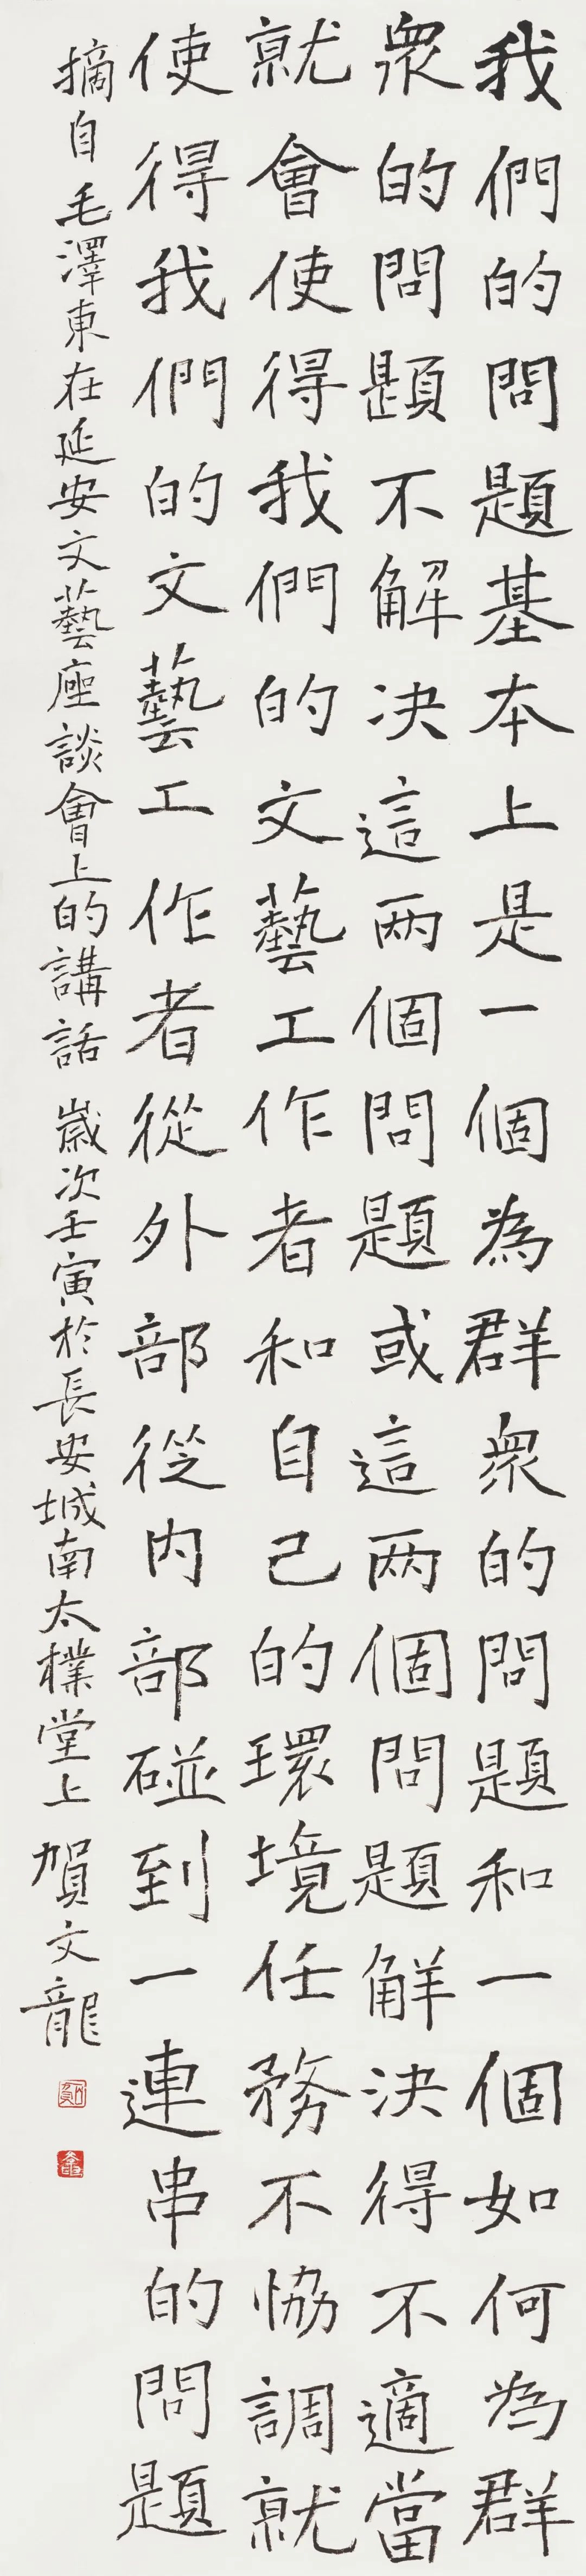 我們的問題基本上是一個為群衆的問題和一個如何為群
衆的問題不解决這兩個問題或這兩個問題解決得不適當
就會使得我們的文藝工作者和自己的環境任務不恊調就
使得我們的文藝工作者從外部從内部碰到一連串的問題
摘自毛澤東在延安文藝座談會上的講話 歲次壬寅於長安城南太樸堂上 賀文龍